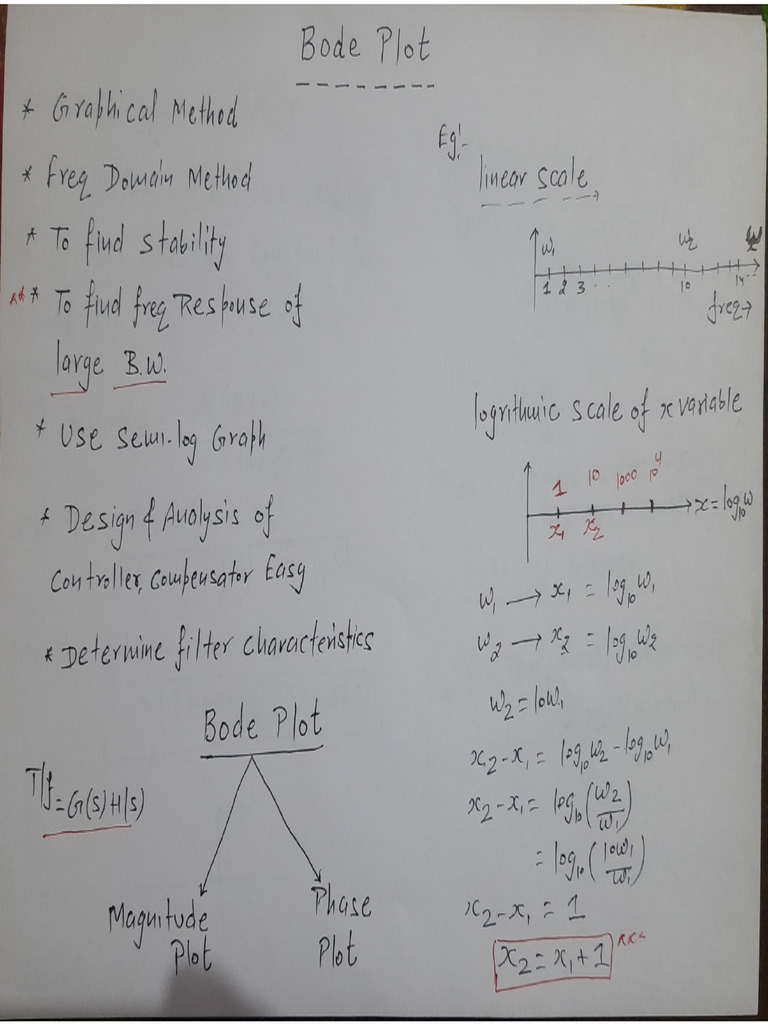 Bode Plot
* Graphical Method
* Freq Domain Method
* To find stability
*** To find freq Response of
large B.W.
* Use Semi-log Graph
* Design & Analysis of
Controller, Compensator Easy
* Determine filter characteristics
Bode Plot
T/f = G(s)H(s)
Magnitude
Plot
Phase
Plot
Eg:-
linear scale
w₁ w₂
1 2 3 .. 10 14 --
freq→
logrithmic scale of x variable
1 10 1000 10⁴
x₁ x₂
x = log₁₀w
w₁ → x₁ = log₁₀w₁
w₂ → x₂ = log₁₀w₂
w₂ = 10w₁
x₂-x₁ = log₁₀w₂ - log₁₀w₁
x₂-x₁ = log₁₀(w₂/w₁)
= log₁₀(10w₁/w₁)
x₂-x₁ = 1
x₂ = x₁+1